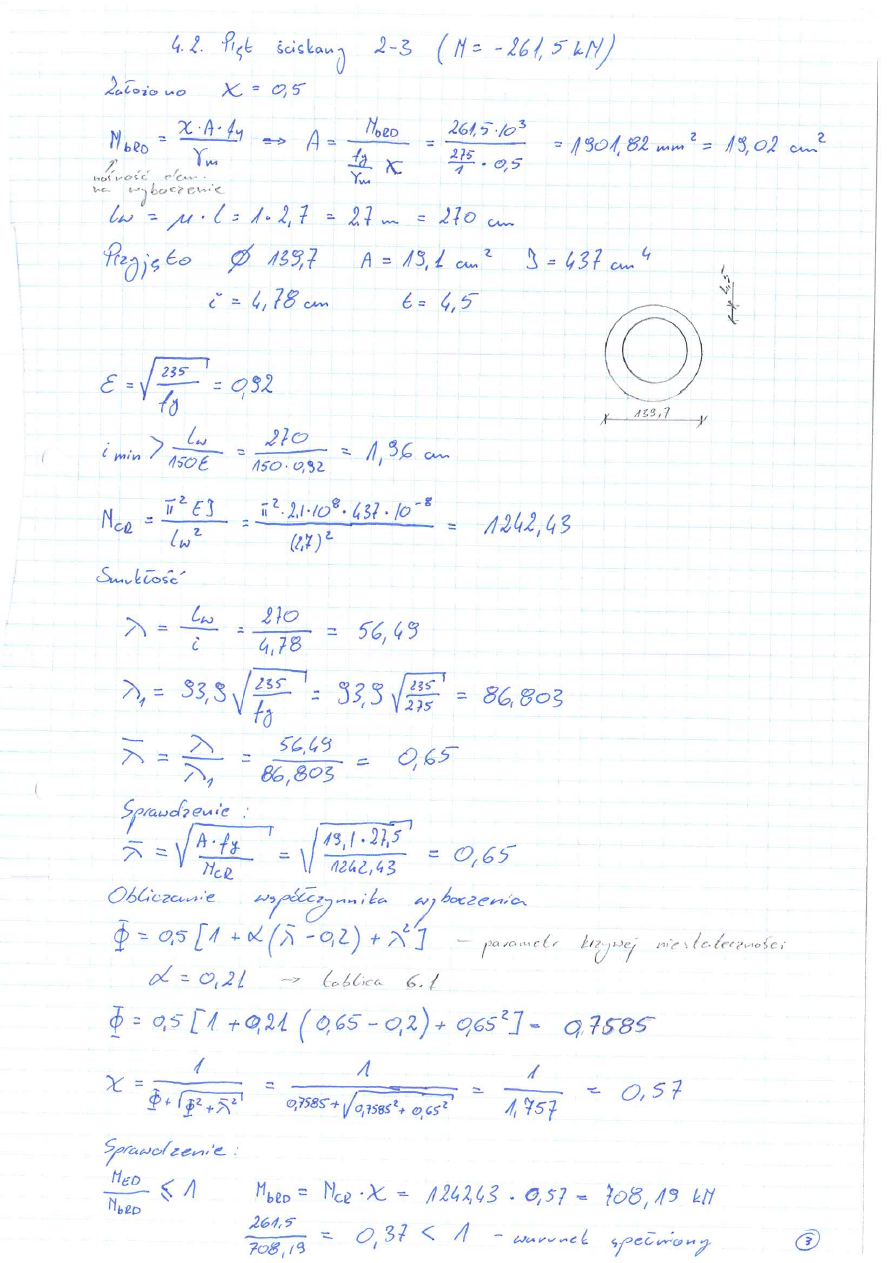 4.2. Pręt ściskany 2-3 (N = -261,5 kN)
Założono χ = 0,5
NbRD = χ·A·fy / γm ⟹ A = NbRD / (fy/γm χ) = 261,5·10³ / (275/1 · 0,5) = 1901,82 mm² = 19,02 cm²
↑
nośność elem.
na wyboczenie
lw = μ·l = 1·2,7 = 2,7 m = 270 cm
Przyjęto Ø 139,7 A = 19,1 cm² J = 437 cm⁴
i = 4,78 cm t = 4,5
4,5
139,7
ε = √(235/fy) = 0,92
i min > lw/150ε = 270/(150·0,92) = 1,96 cm
NCR = π²EJ / lw² = π²·2,1·10⁸·437·10⁻⁸ / (2,7)² = 1242,43
Smukłość
λ = lw/i = 270/4,78 = 56,49
λ₁ = 93,9 √(235/fy) = 93,9 √(235/275) = 86,803
λ̄ = λ/λ₁ = 56,49/86,803 = 0,65
Sprawdzenie:
λ̄ = √(A·fy/NCR) = √(19,1·27,5/1242,43) = 0,65
Obliczanie współczynnika wyboczenia
Φ = 0,5 [1 + α(λ̄ - 0,2) + λ̄²] - parametr krzywej niestateczności
α = 0,21 → tablica 6.1
Φ = 0,5 [1 + 0,21 (0,65 - 0,2) + 0,65²] = 0,7585
χ = 1/(Φ + √(Φ² + λ̄²)) = 1/(0,7585 + √(0,7585² + 0,65²)) = 1/1,757 = 0,57
Sprawdzenie:
NED/NbRD ≤ 1 NbRD = NCR·χ = 1242,43 · 0,57 = 708,19 kN
261,5/708,19 = 0,37 < 1 - warunek spełniony
3